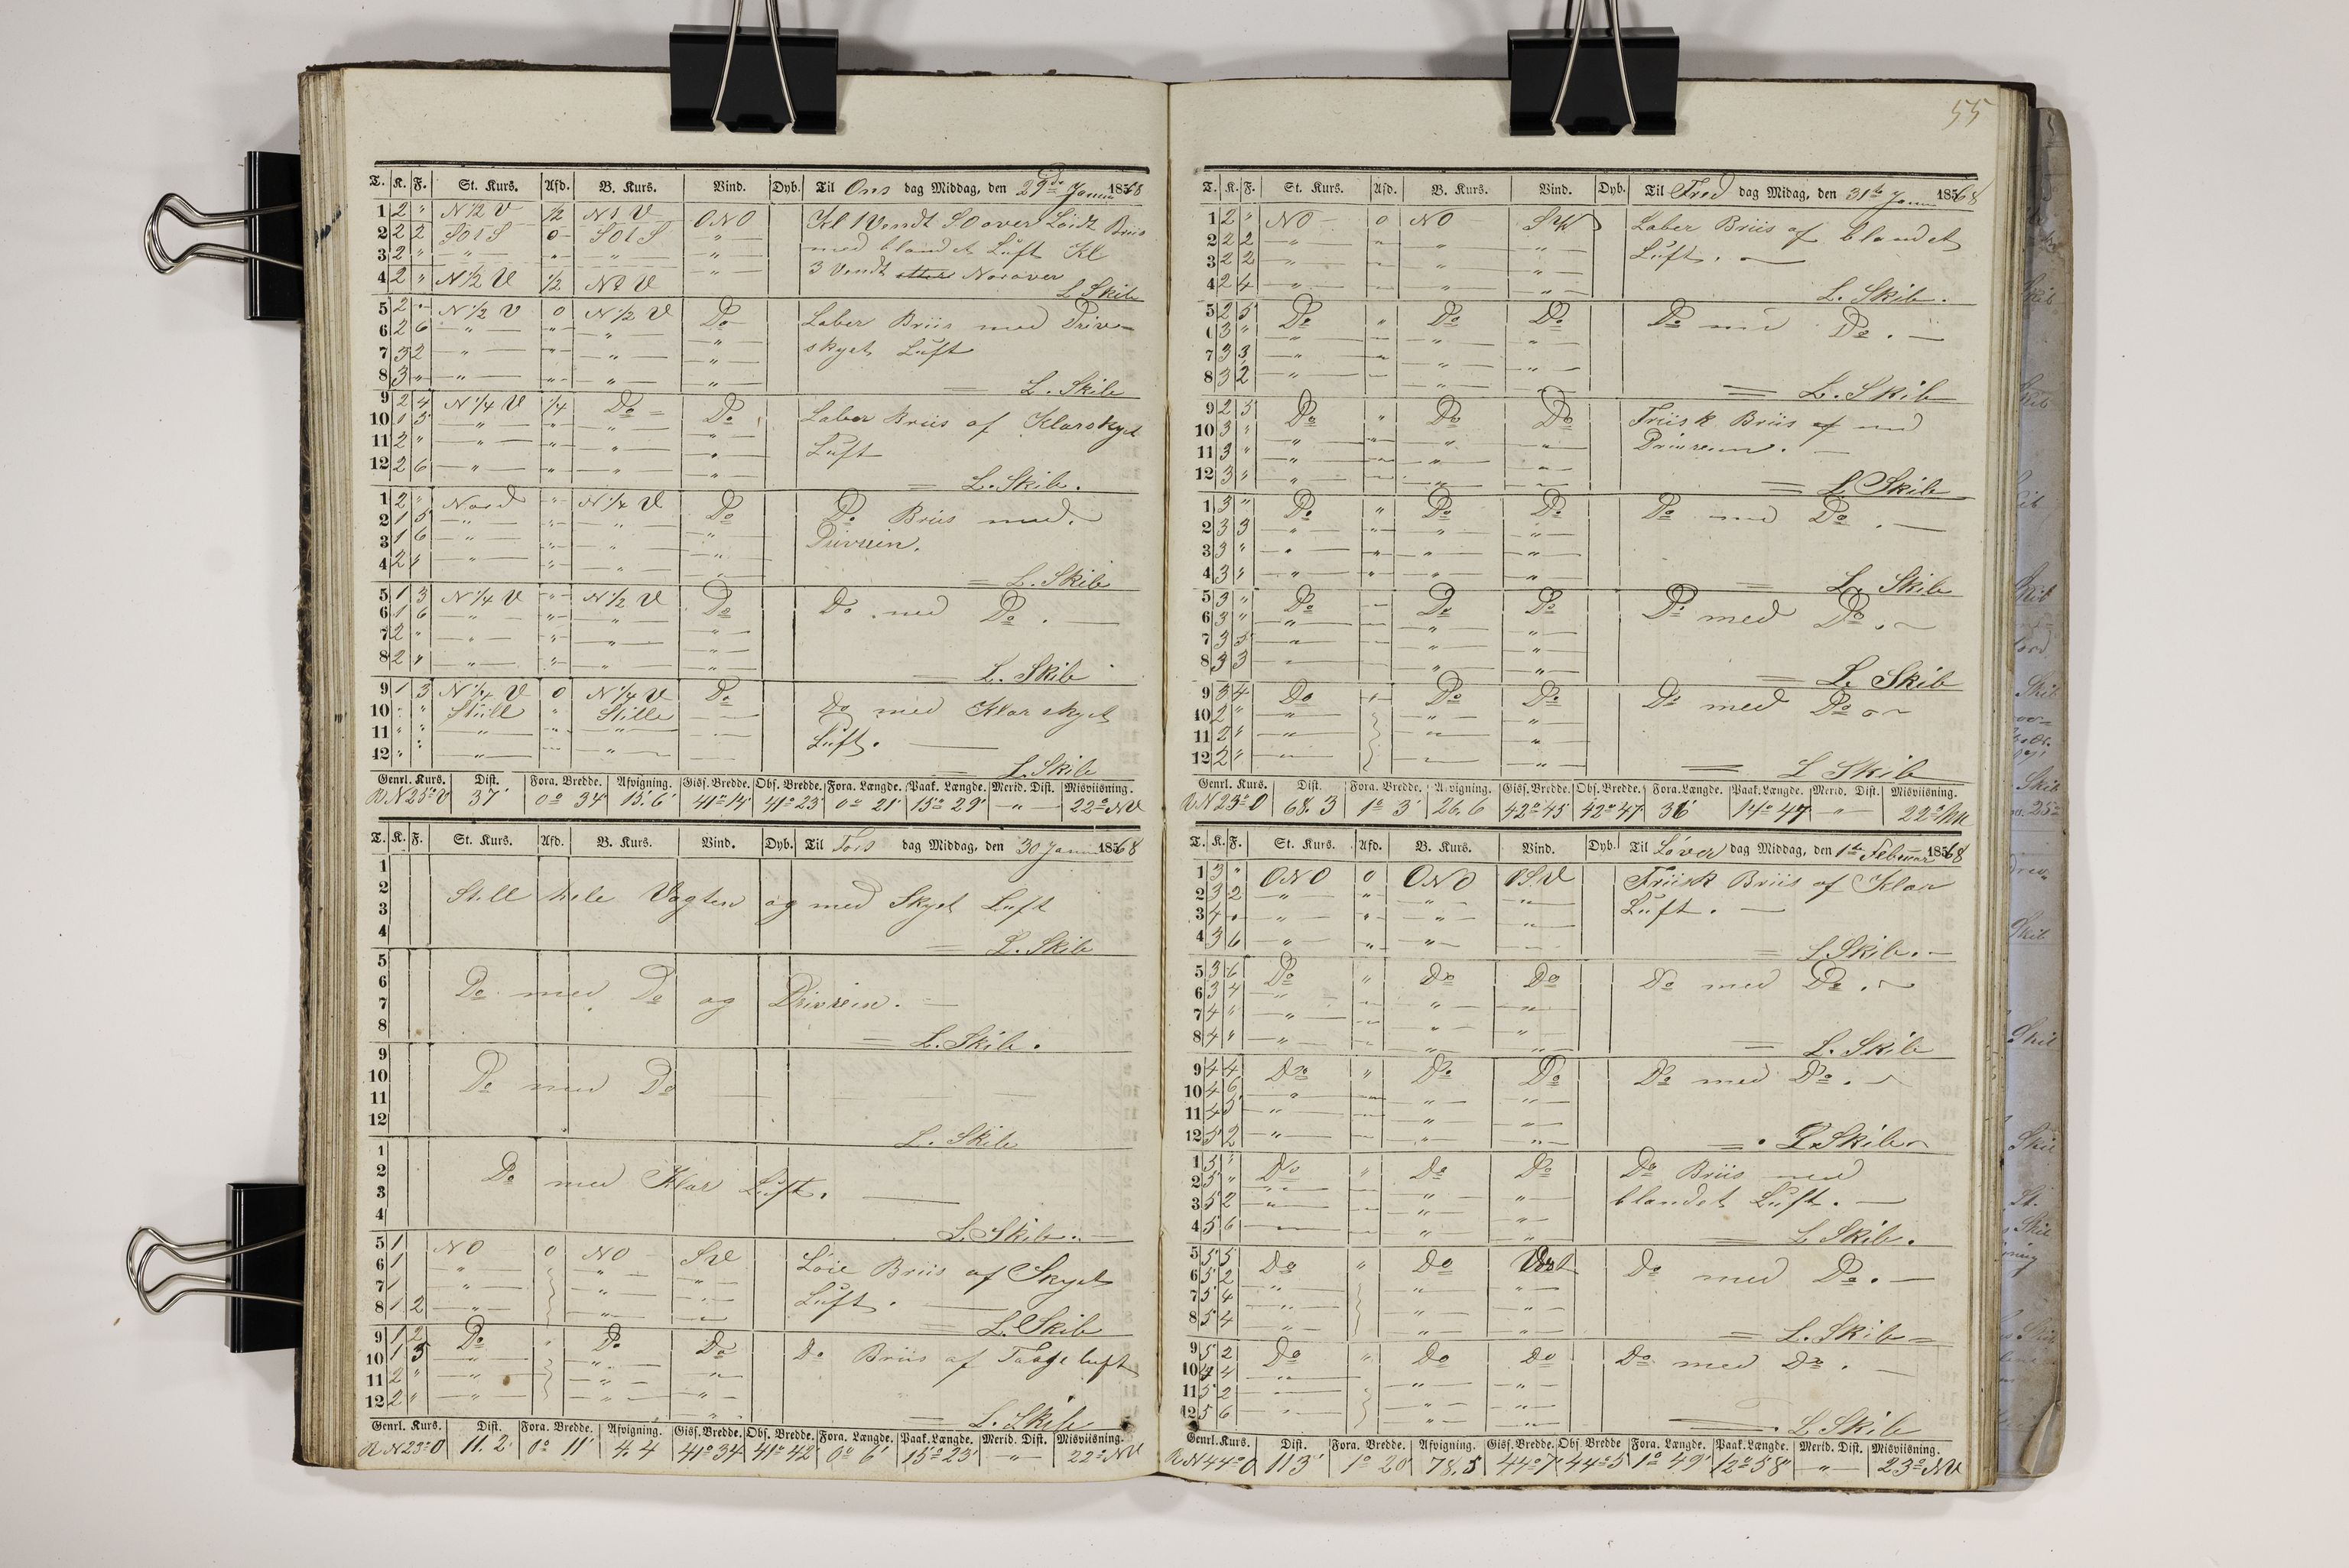 55
T. K. F. St. Kurs. Afd. B. Kurs. Vind. Dyb. Til Ons dag Middag, den 29de Janu 1868
1 2 " N 1/2 V 1/2 N 1 V ONO Kl 1 Vendt SO over Löidt Briis
2 2 2 SO t S 0 SO t S " med blandet Luft Kl
3 2 " " " " " 3 Vendt Norover
4 2 " N 1/2 V 1/2 N 2 V " L. Skib
5 2 " N 1/2 V 0 N 1/2 V Do Laber Briis med Driv
6 2 6 " " " " skyet Luft
7 3 2 " " " "
8 3 " " " " " L. Skib
9 2 4 N 1/4 V 1/4 Do Do Laber Briis af Klarskyet
10 1 5 " " " " Luft
11 2 " " " " "
12 2 6 " " " " L. Skib.
1 2 " Nord " N 1/4 V Do Do Briis med
2 1 5 " " " " Drivrein.
3 1 6 " " " "
4 2 " " " " " L. Skib
5 1 3 N 1/4 V " N 1/2 V Do Do med Do.
6 1 6 " " " "
7 2 " " " " "
8 2 " " " " " L. Skib
9 1 3 N 1/4 V 0 N 1/4 V Do Do med Klar skyet
10 " " Still " Stille " Luft.
11 " " " " " "
12 " " " " " " L. Skib
Genrl. Kurs. Dist. Fora. Bredde. Afvigning. Giss. Bredde. Obs. Bredde. Fora. Længde. Paak. Længde. Merid. Dist. Misviisning.
R N 25° V 37' 0° 34' 15' 6' 41° 14' 41° 23' 0° 21' 15° 29' " 22° NV
T. K. F. St. Kurs. Afd. B. Kurs. Vind. Dyb. Til Tors dag Middag, den 30 Janu 1868
1
2 Still hele Vagten og med Skyet Luft
3
4 L. Skib
5
6 Do med Do og Drivrein.
7
8 L. Skib.
9
10 Do med Do
11
12 L. Skib
1
2 Do med Klar Luft.
3
4 L. Skib.
5 1 NO 0 NO SV Löie Briis af Skyet
6 1 " " " " Luft.
7 1 " " " "
8 1 2 " " " " L. Skib
9 1 2 Do " Do Do Do Briis af Taage luft
10 1 5 " " " "
11 2 " " " " "
12 2 " " " " " L. Skib
Genrl. Kurs. Dist. Fora. Bredde. Afvigning. Giss. Bredde. Obs. Bredde. Fora. Længde. Paak. Længde. Merid. Dist. Misviisning.
R N 23° O 11. 2' 0° 11' 4. 4 41° 34' 41° 42' 0° 6' 15° 23' " 22° NV
T. K. F. St. Kurs. Afd. B. Kurs. Vind. Dyb. Til Fred dag Midag, den 31te Janu 1868
1 2 " NO 0 NO Laber Briis af blandet
2 2 2 " " " " Luft.
3 2 2 " " " "
4 2 4 " " " " L. Skib.
5 2 5 Do " Do Do Do med Do.
6 3 " " " " "
7 3 3 " " " "
8 3 2 " " " " L. Skib
9 2 5 Do " Do Do Friisk Briis af med
10 3 " " " " " Drivrein.
11 3 " " " " "
12 3 " " " " " L. Skib
1 3 " Do " Do Do Do med Do.
2 3 3 " " " "
3 3 " " " " "
4 3 " " " " " L. Skib
5 3 " Do " Do Do Do med Do.
6 3 " " " " "
7 3 5 " " " "
8 3 3 " " " " L. Skib
9 3 4 Do " Do Do Do med Do
10 2 " " " "
11 2 " " " "
12 2 " " " " L. Skib
Genrl. Kurs. Dist. Fora. Bredde. Afvigning. Giss. Bredde. Obs. Bredde. Fora. Længde. Paak. Længde. Merid. Dist. Misviisning.
R N 23° O 68. 3 1° 3' 26. 6 42° 45' 42° 47' 36' 14° 47' " 22°
T. K. F. St. Kurs. Afd. B. Kurs. Vind. Dyb. Til Löver dag Middag, den 1te Februar 1868
1 3 " ONO 0 ONO Friisk Briis af Klar
2 3 2 " " " " Luft.
3 4 " " " " "
4 3 6 " " " " L. Skib.
5 3 6 Do " Do Do Do med Do.
6 3 4 " " " "
7 4 " " " " "
8 4 " " " " " L. Skib
9 4 4 Do " Do Do Do med Do.
10 4 6 " " " "
11 4 5 " " " "
12 5 2 " " " " L. Skib
1 5 " Do " Do Do Do Briis med
2 5 " " " " " blandet Luft.
3 5 2 " " " "
4 5 6 " " " " L. Skib.
5 5 5 Do " Do Vest Do med Do.
6 5 2 " " "
7 5 4 " " "
8 5 4 " " " L. Skib
9 5 2 Do " Do Do Do med Do.
10 4 4 " " "
11 5 2 " " "
12 5 6 " " " L. Skib
Genrl. Kurs. Dist. Fora. Bredde. Afvigning. Giss. Bredde. Obs. Bredde Fora. Længde. Paak. Længde. Merid. Dist. Misviisning.
R N 44° O 113' 1° 20' 78. 5 44° 7' 44° 5' 1° 49' 12° 58' " 23° NV